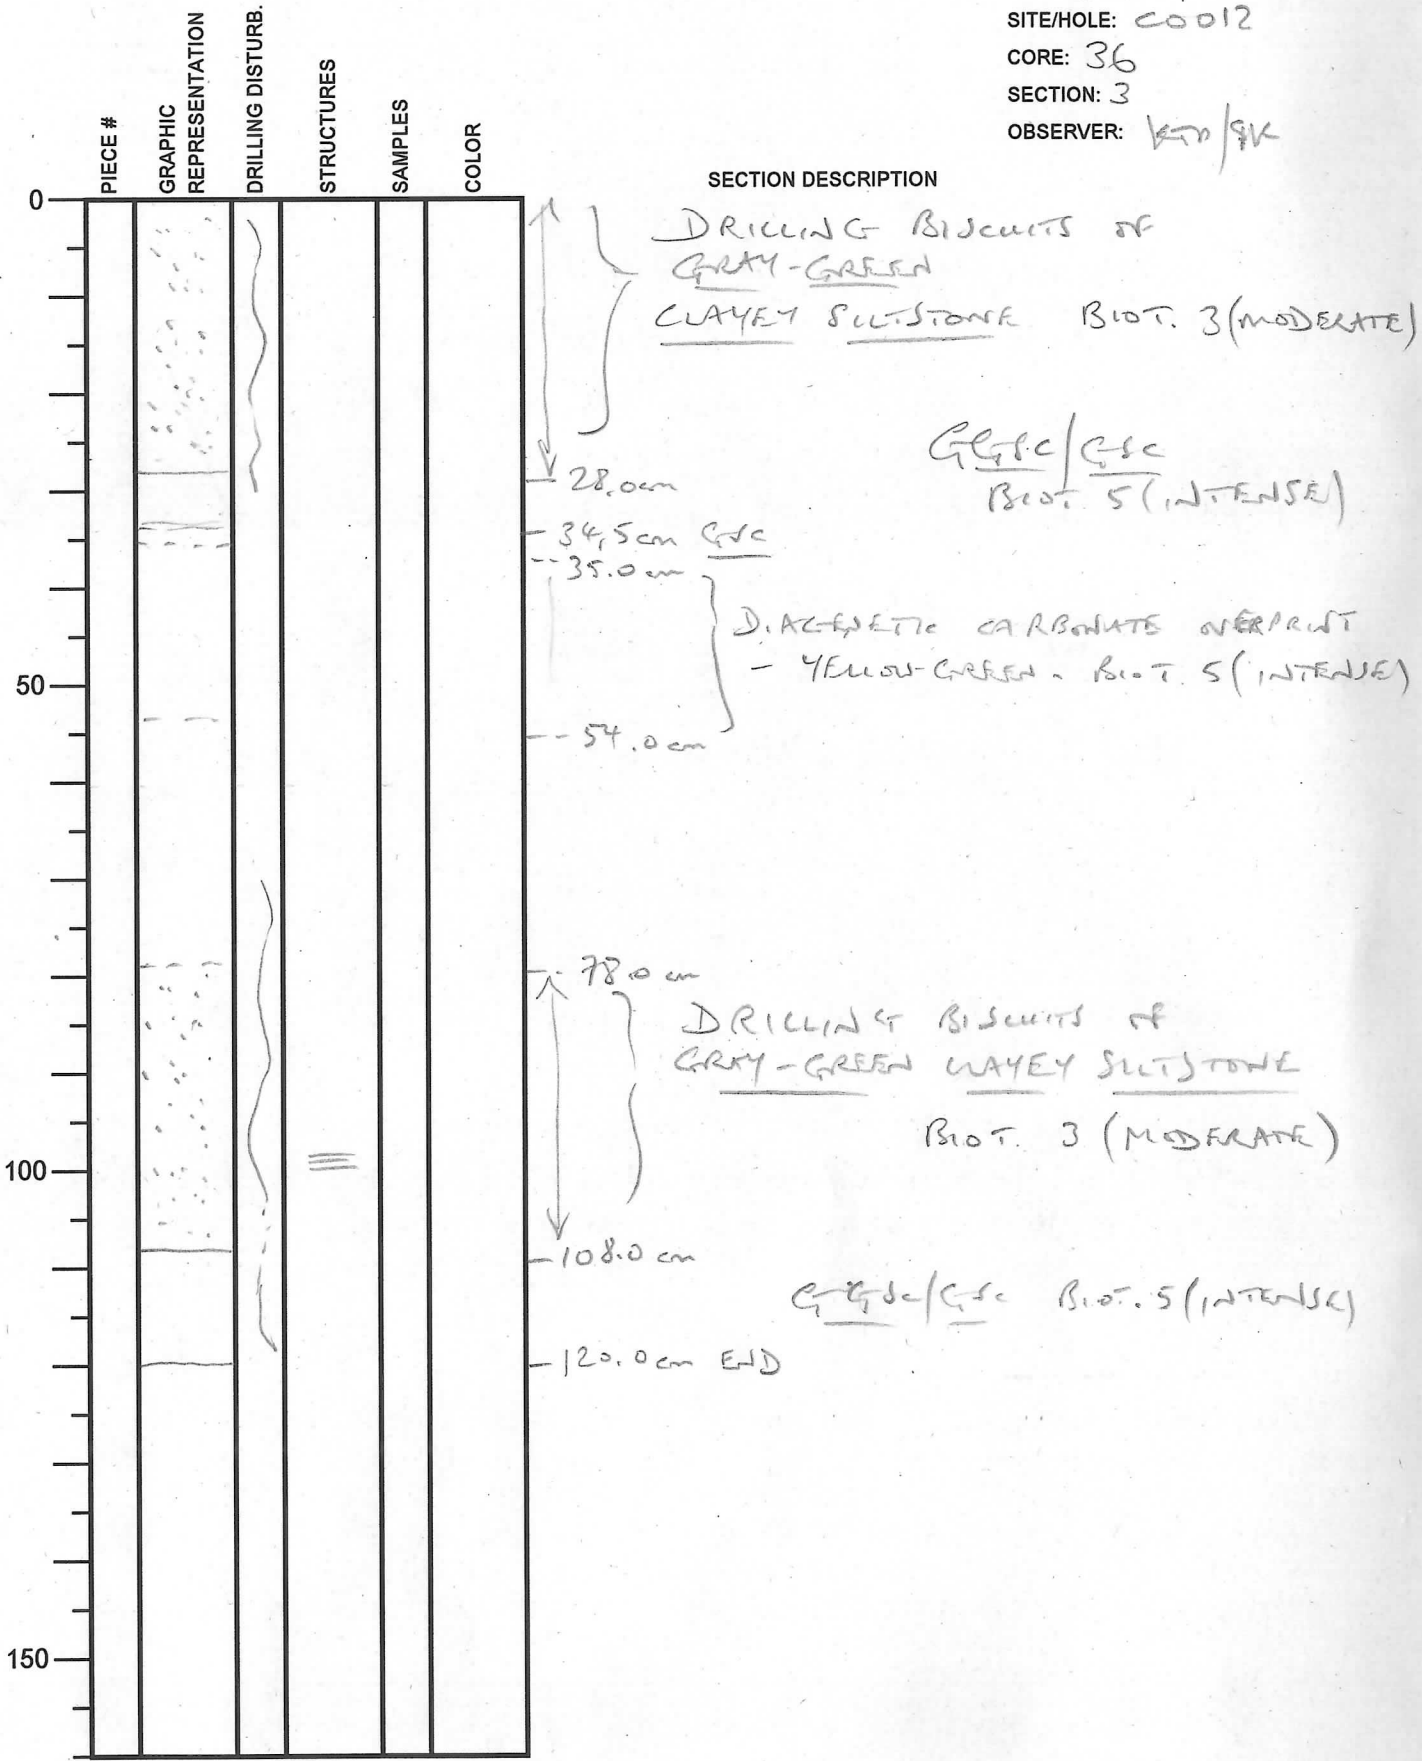 SITE/HOLE: C0012
CORE: 36
SECTION: 3
OBSERVER:
PIECE #
GRAPHIC
REPRESENTATION
DRILLING DISTURB.
STRUCTURES
SAMPLES
COLOR
SECTION DESCRIPTION
0
DRILLING BISCUITS OF
GRAY-GREEN
CLAYEY SILTSTONE BIOT. 3 (MODERATE)
GGSC/GSC
BIOT. 5 (INTENSE)
28.0cm
34.5cm GSC
35.0cm
DIAGENETIC CARBONATE OVERPRINT
- YELLOW-GREEN. BIOT. 5 (INTENSE)
50
54.0cm
78.0 cm
DRILLING BISCUITS OF
GRAY-GREEN CLAYEY SILTSTONE
BIOT. 3 (MODERATE)
100
108.0 cm
GGSC/GSC BIOT. 5 (INTENSE)
120.0cm END
150